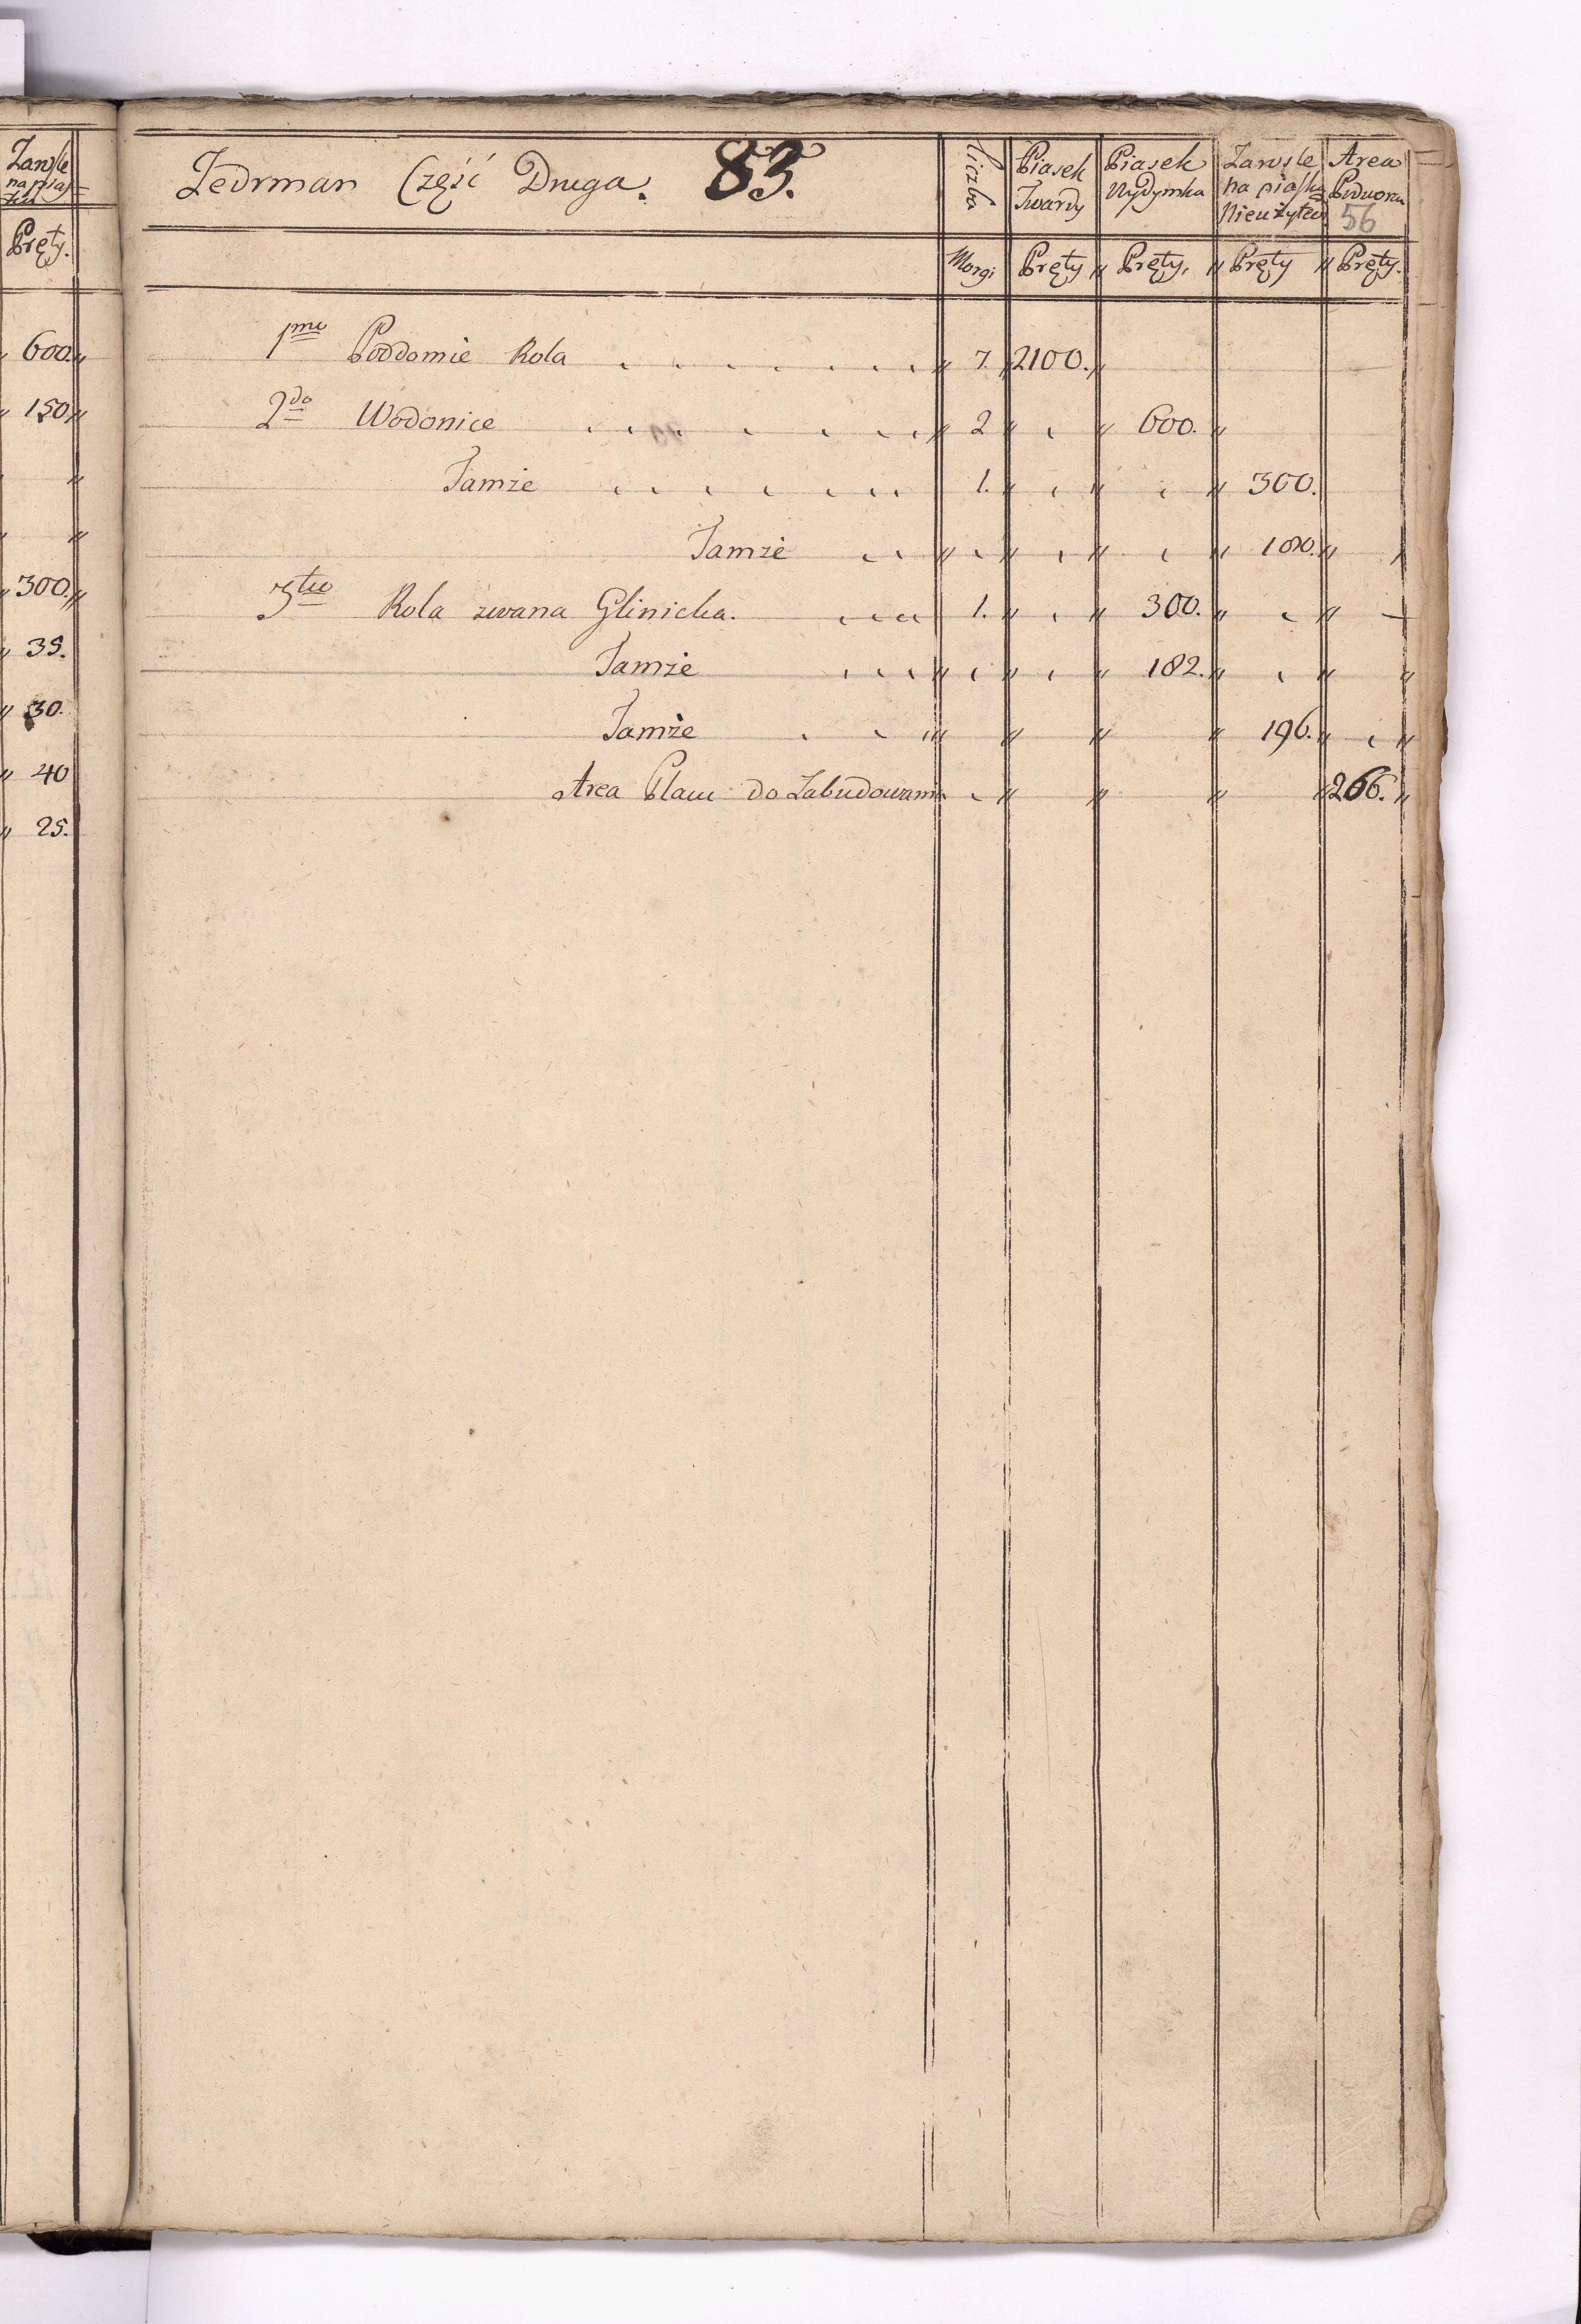 Zarosle
na pias=
ku
Pręty.
600.
150.
300.
35.
30.
40
25.
Jedrman Część Druga. 83.
Liczba
Piasek
Twardy
Piasek
Wydymka
Zarosle
na piasku
Nieużytew
Area
Podworu
56
Morgi Pręty Pręty, Pręty Pręty.
1mo Poddomie Rola 7. 2100.
2do Wodonice 2 600.
Tamże 1. 300.
Tamże 180.
3tio Rola zwana Glinicka. 1. 300.
Tamże 182.
Tamże 196.
Area Placu do Zabudowania 266.